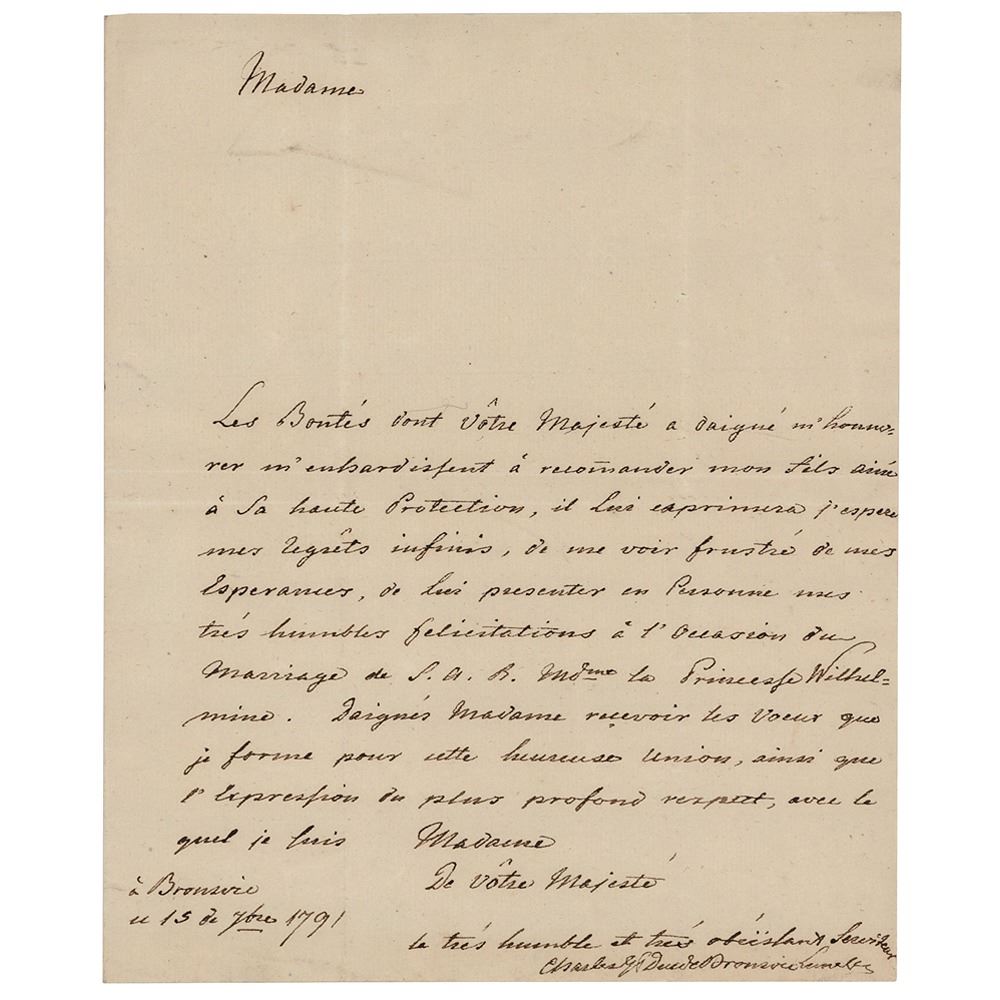 Madame
Les Bontés dont Vôtre Majesté a daigné m'honno=
rer m'enhardissent à recom̃ander mon fils ainé
à Sa haute Protection, il Lui exprimera j'espere
mes regrêts infinis, de me voir frustré de mes
Esperances, de Lui presenter en Personne mes
trés humbles felicitations à l'Occasion du
Marriage de S. A. R. Mdme la Princesse Wilhel=
mine. Daignés Madame recevoir les Voeux que
je forme pour cette heureuse Union, ainsi que
l'Expression du plus profond respect, avec le
quel je suis Madame
De Vôtre Majesté
à Bronsvic
ce 15 de 7bre 1791
le trés humble et trés obëissant Serviteur
Charles G F Duc de Bronsvic Luneb